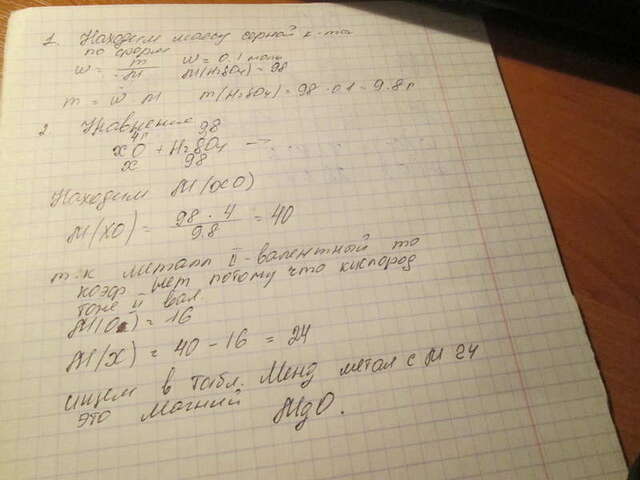 1. Находим массу серной к-ты
по форм
w = m/M w = 0.1 моль
M(H2SO4) = 98
m = w M m(H2SO4) = 98 · 0.1 = 9.8 г
2 Уравнение
4г 9.8
xO + H2SO4 →
x 98
Находим M(xO)
M(xO) = 98 · 4 / 9.8 = 40
т.к металл II-валентный то
коэф нет потому что кислород
тоже II вал
M(O) = 16
M(x) = 40 - 16 = 24
ищем в табл. Менд метал с M 24
это магний MgO.